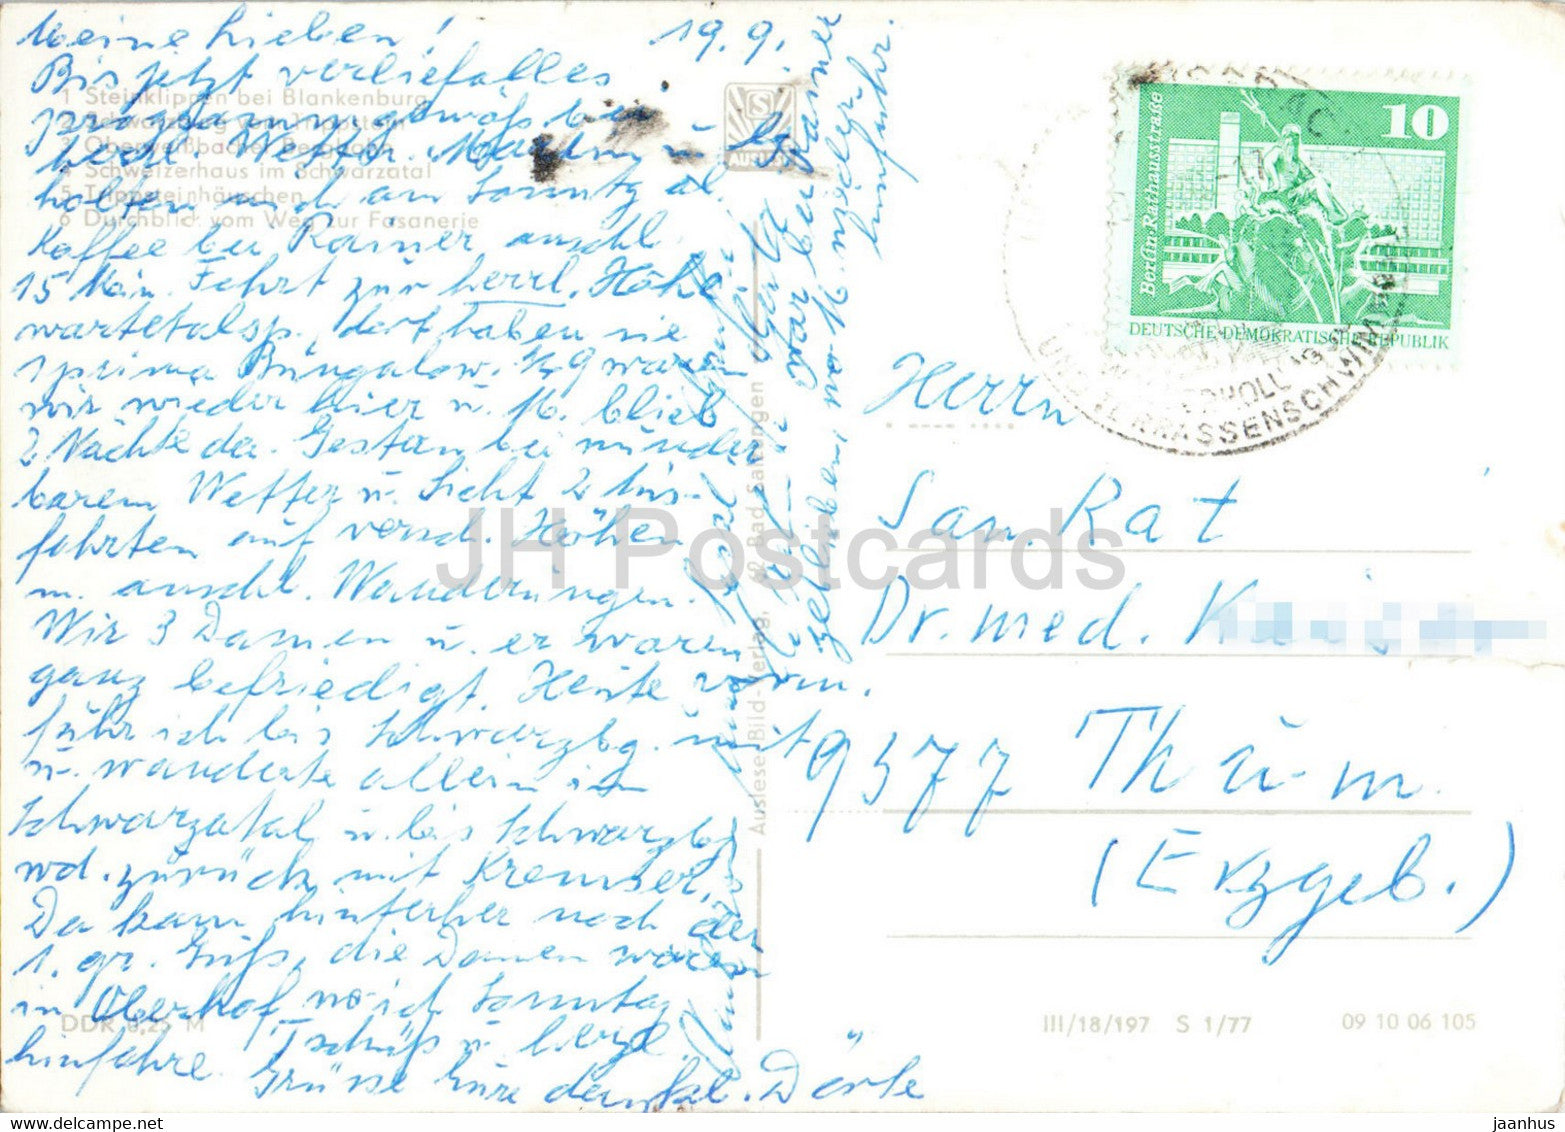 Meine Lieben! 19.9.
Bis jetzt verlief alles
programmgemäß bei
best. Wetter. u.
holten mich am Sonntg ab.
Kaffee bei Rainer anschl.
15 Min. Fahrt zur herrl. Hohe-
wartetalsp., dort haben sie
1 prima Bungalow. ½ 9 waren
wir wieder hier u. M. blieb
2 Nächte da. Gestern bei wunder-
barem Wetter u. Sicht 2 Aus-
fahrten auf versch. Höhen
m. anschl. Wanderungen.
Wir 3 Damen u. er waren
ganz befriedigt. Heute vorm.
fuhr ich bis Schwarzbg. mit
u. wanderte allein im
Schwarzatal u. bis Schwarzbg.
wd. zurück mit Kremser.
Da kam hinterher noch der
1. gr. Guß, die Damen waren
in Oberhof, wo ich Sonntag
hinfahre. Tschüß u. herzl.
Grüsse Eure dankb. Dörte
war bei Rainer
geblieben, wo M. wieder
hinfuhr.
1 Steinklippen bei Blankenburg
2 Schwarzburg vom Trippstein
3 Oberweißbacher Bergbahn
4 Schweizerhaus im Schwarzatal
5 Trippsteinhäuschen
6 Durchblick vom Weg zur Fasanerie
DDR 0,25 M
Auslese-Bild-Verlag, 62 Bad Salzungen
10
Berlin-Rathausstraße
DEUTSCHE DEMOKRATISCHE REPUBLIK
UND TERRASSENSCHWIMMBAD
Herrn
San. Rat
Dr. med. K
9377 Thum
(Erzgeb.)
III/18/197 S 1/77 09 10 06 105
JH Postcards
jaanhus